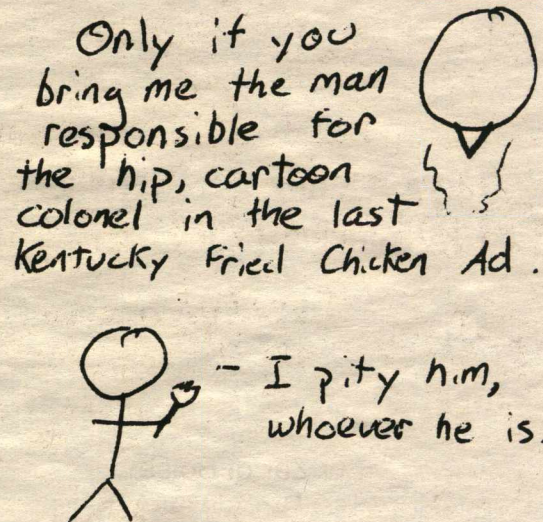 Only if you
bring me the man
responsible for
the hip, cartoon
colonel in the last
Kentucky Fried Chicken Ad.
- I pity him,
whoever he is.